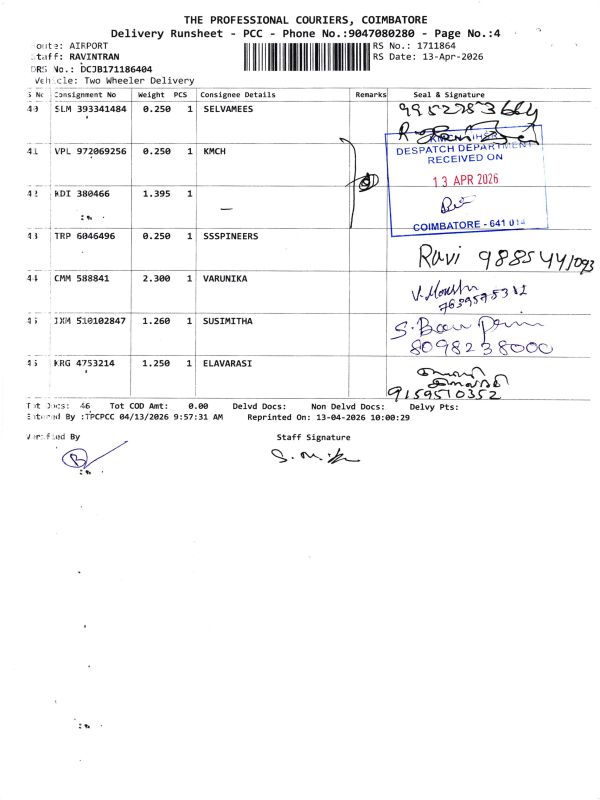 THE PROFESSIONAL COURIERS, COIMBATORE
Delivery Runsheet - PCC - Phone No.:9047080280 - Page No.:4
Route: AIRPORT RS No.: 1711864
Staff: RAVINTRAN RS Date: 13-Apr-2026
DRS No.: DCJB171186404
Vehicle: Two Wheeler Delivery
S No Consignment No Weight PCS Consignee Details Remarks Seal & Signature
40 SLM 393341484 0.250 1 SELVAMEES
41 VPL 972069256 0.250 1 KMCH
DESPATCH DEPARTMENT
RECEIVED ON
13 APR 2026
42 KDI 380466 1.395 1
COIMBATORE - 641 014
43 TRP 6046496 0.250 1 SSSPINEERS
Ravi 9885441093
44 CMM 588841 2.300 1 VARUNIKA
45 JXM 510102847 1.260 1 SUSIMITHA
8098238000
46 KRG 4753214 1.250 1 ELAVARASI
9159510352
Tot Docs: 46 Tot COD Amt: 0.00 Delvd Docs: Non Delvd Docs: Delvy Pts:
Entered By :TPCPCC 04/13/2026 9:57:31 AM Reprinted On: 13-04-2026 10:00:29
Verified By Staff Signature